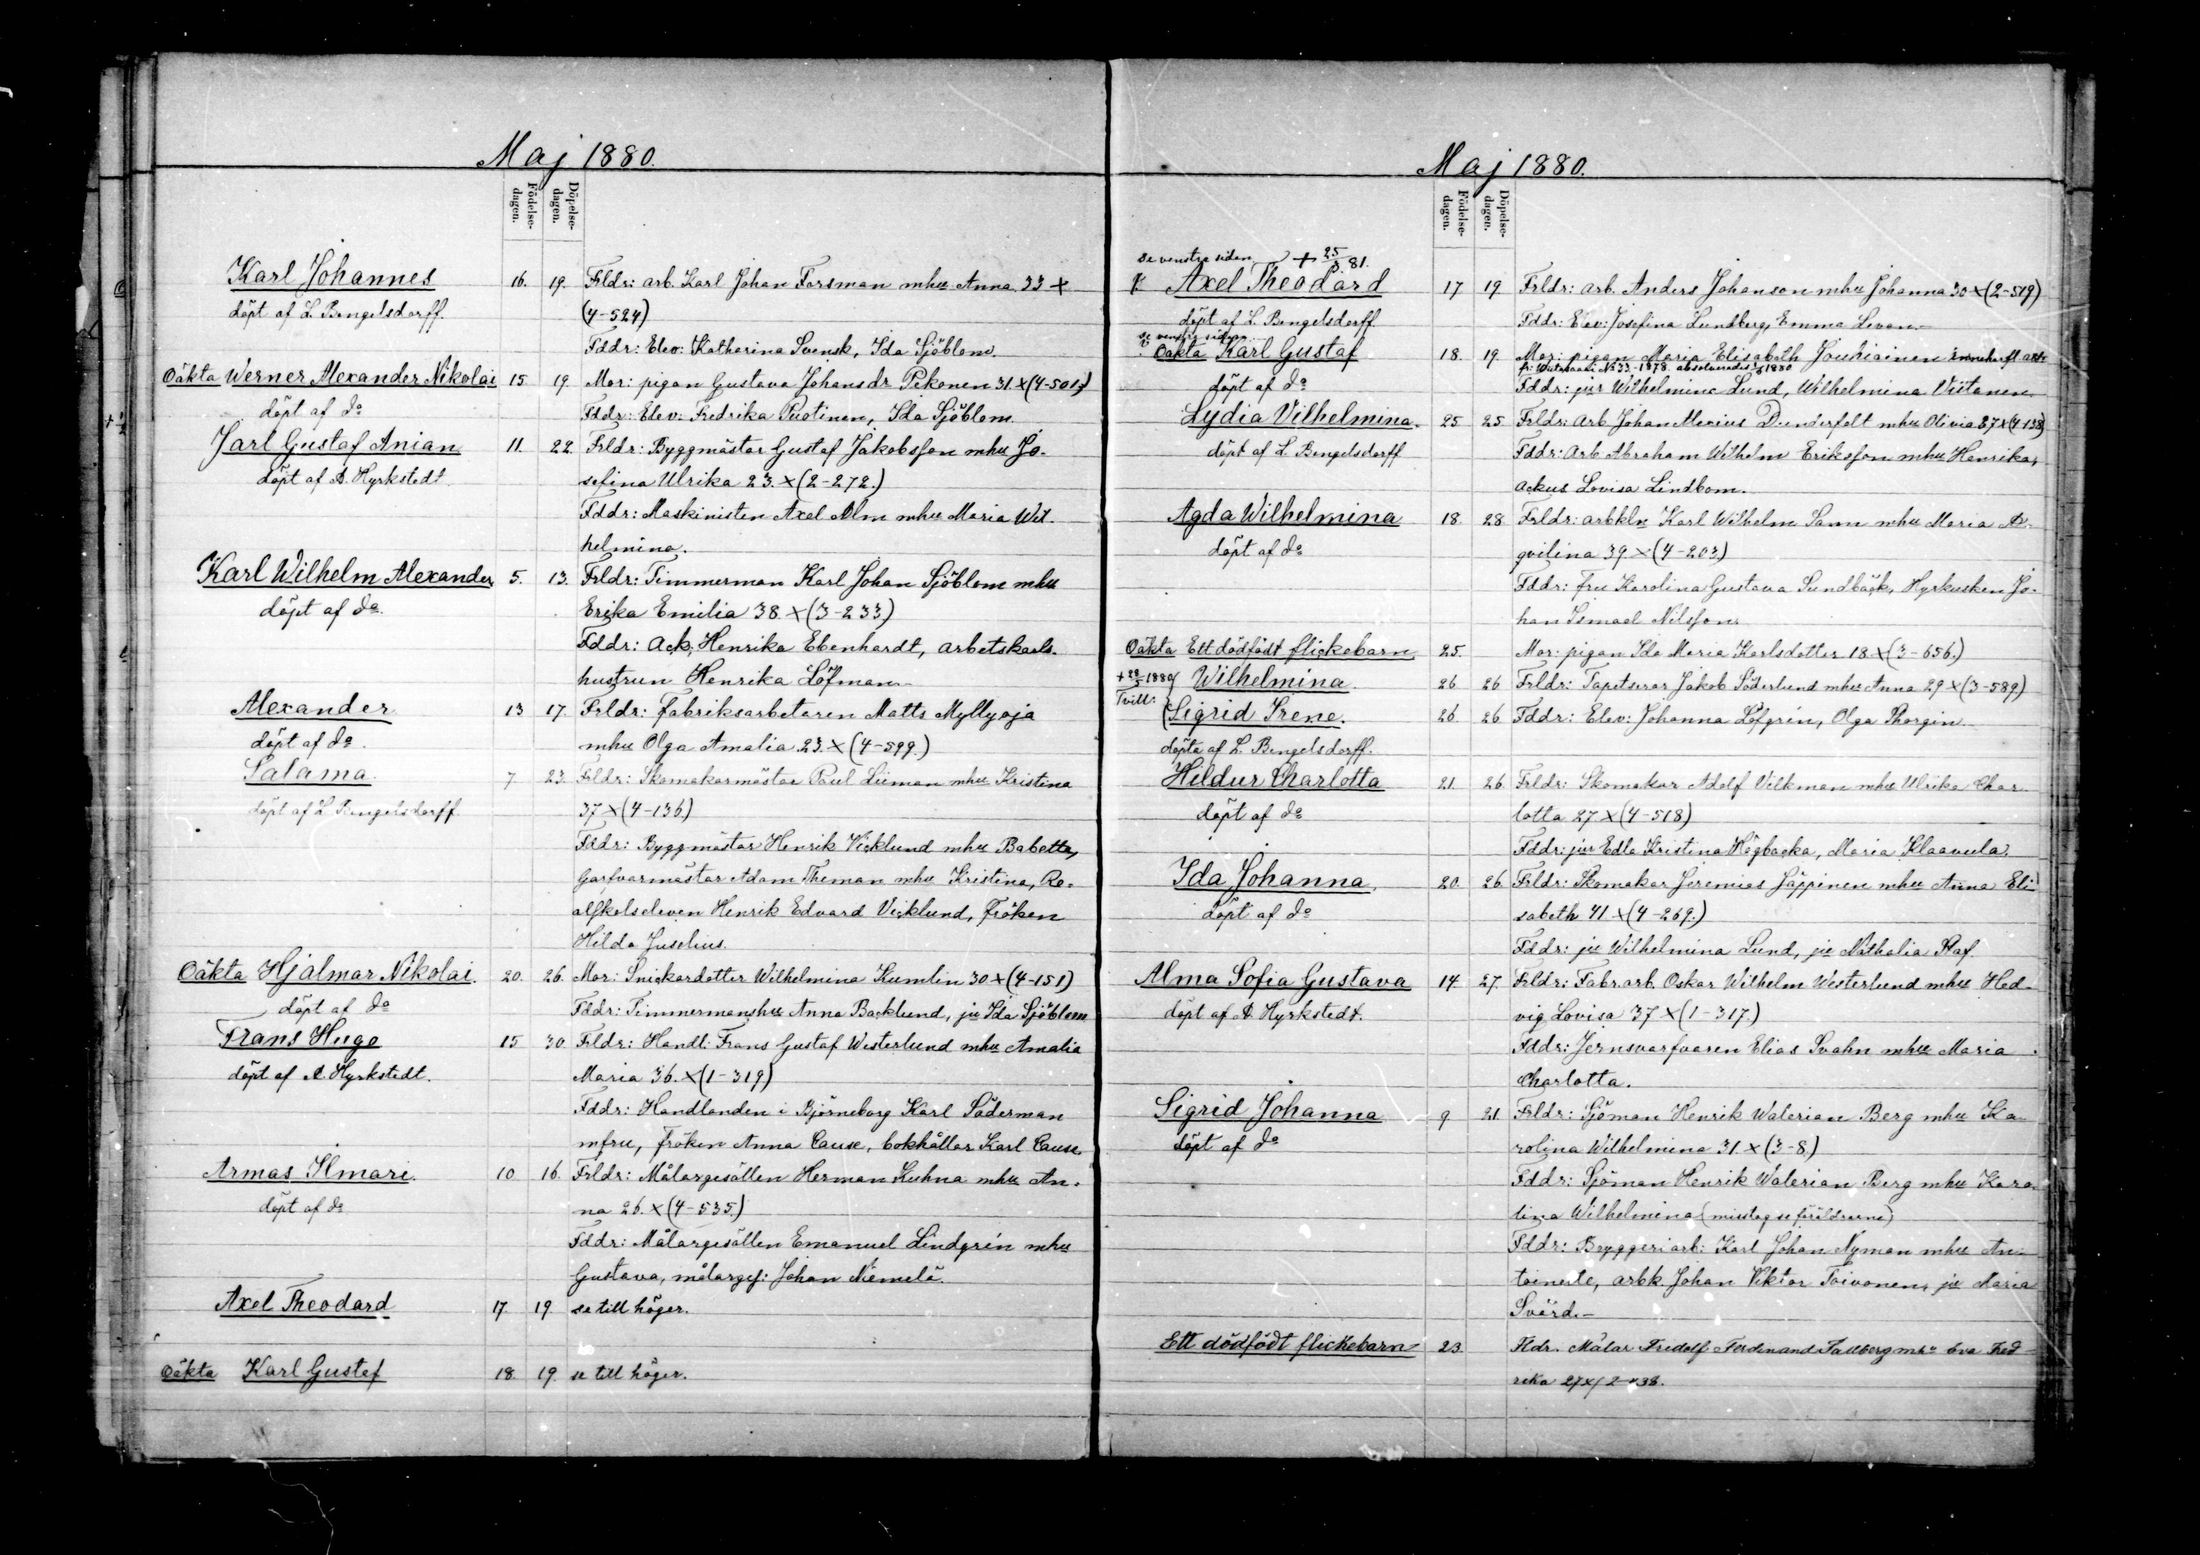 Maj 1880.
Födelse-dagen. Döpelse-dagen.
Karl Johannes 16. 19. Frldr: arb. Karl Johan Forsman mhu Anna 33 ×
döpt af L. Bengelsdorff. (4-524)
Fddr: Elev: Katherina Svensk, Ida Sjöblom.
Oäkta Werner Alexander Nikolai 15 19. Mor: pigan Gustava Johansdr Pekonen 31 × (4-501)
döpt af do Fddr: Elev. Fredrika Puotinen, Ida Sjöblom.
Jarl Gustaf Anian 11. 22. Frldr: Byggmästar Gustaf Jakobsson mhu Jo-
döpt af A. Hyrkstedt sefina Ulrika 23. × (2-272.)
Fddr: Maskinisten Axel Alm mhu Maria Wil-
helmina.
Karl Wilhelm Alexander 5. 13. Frldr: Timmerman Karl Johan Sjöblom mhu
döpt af do. Erika Emilia 38 × (3-233)
Fddr: Ack. Henrika Ebenhardt, arbetskarls-
hustrun Henrika Löfman.
Alexander 13 17. Frldr: fabriksarbetaren Matts Myllyoja
döpt af do. mhu Olga Amalia 23. × (4-599.)
Salama 7 23. Frldr: Skomakarmästar Paul Liiman mhu Kristina
döpt af L Bengelsdorff 37 × (4-136)
Fddr: Byggmästar Henrik Vicklund mhu Babette,
Garfvarmästar Adam Theman mhu Kristina, Re-
alskolseleven Henrik Edvard Vicklund, Fröken
Hilda Juselius.
Oäkta Hjalmar Nikolai. 20. 26. Mor: Snickardotter Wilhelmina Kumlin 30 × (4-151)
döpt af do Fddr: Timmermanshu Anna Backlund, ju Ida Sjöblom
Frans Hugo 15 30. Frldr: Handl: Frans Gustaf Westerlund mhu Amalia
döpt af A. Hyrkstedt. Maria 36. × (1-319)
Fddr: Handlanden i Björneborg Karl Söderman
mfru, fröken Anna Cause, bokhållar Karl Cause.
Armas Ilmari 10 16. Frldr: Målargesällen Herman Kuhna mhu An-
döpt af do na 26. × (4-535.)
Fddr: Målargesällen Emanuel Lindgrén mhu
Gustava, målarges: Johan Niemelä.
Axel Theodard 17. 19. se till höger.
Oäkta Karl Gustaf 18. 19. se till höger.
Maj 1880.
Födelse-dagen. Döpelse-dagen.
se venstra sidan + 25/3. 81.
Axel Theodard 17 19. Frldr: arb. Anders Johanson mhu Johanna 30 × (2-519)
döpt af L. Bengelsdorff Fddr: Elev: Josefina Lundberg, Emma Levon.
se venstra sidan
Oäkta Karl Gustaf 18. 19. Mor: pigan Maria Elisabeth Jouhiainen
No 33-1878 absolverades 1880
döpt af do Fddr: jur Wilhelmina Lund, Wilhelmina Vistanen.
Lydia Vilhelmina. 25 25. Frldr: Arb Johan Alexius Dunderfelt mhu Olivia 27 × (4-138)
döpt af L. Bengelsdorff Fddr: Arb Abraham Wilhelm Eriksson mhu Henrika,
ackus. Lovisa Lindbom.
Agda Wilhelmina 18. 28. Frldr: arbkln Karl Wilhelm Sann mhu Maria A-
döpt af do qvilina 39 × (4-203)
Fddr: fru Karolina Gustava Sundbäck, Hyrkusken Jo-
han Ismael Nilsson.
Oäkta Ett dödfödt flickebarn 25. Mor: pigan Ida Maria Karlsdotter 18 × (3-656.)
+ 1880 Wilhelmina. 26 26 Frldr: Tapetserar Jakob Söderlund mhu Anna 29 × (3-589)
Tvill: Sigrid Irene. 26. 26 Fddr: Elev: Johanna Löfgrén, Olga Thorgin.
döpta af L. Bengelsdorff.
Hildur Charlotta 21. 26 Frldr: Skomakar Adolf Vilkman mhu Ulrika Char-
döpt af do lotta 27 × (4-518)
Fddr: jur Edla Kristina Högbacka, Maria Klaavula.
Ida Johanna. 20. 26 Frldr: Skomakar Jeremias Jäppinen mhu Anna Eli-
döpt af do sabeth 41 × (4-269.)
Fddr: ju Wilhelmina Lund, ju Nathalia Staf.
Alma Sofia Gustava 14 27. Frldr: Fabr. arb. Oskar Wilhelm Westerlund mhu Hed-
döpt af A. Hyrkstedt. vig Lovisa 37 × (1-317.)
Fddr: Jernsvarfvaren Elias Svahn mhu Maria
Charlotta.
Sigrid Johanna 9 21. Frldr: Sjöman Henrik Walerian Berg mhu Ka-
döpt af do rolina Wilhelmina 31. × (3-8.)
Fddr: Sjöman Henrik Walerian Berg mhu Karo-
lina Wilhelmina (misstag se föräldrarne)
Fddr: Bryggeriarb: Karl Johan Nyman mhu An-
toinette, arbk. Johan Viktor Toivonen, ju Maria
Svärd.-
Ett dödfödt flickebarn 23. Fldr. Målar Fridolf Ferdinand Fallberg mhu Eva Fred-
rika 27 ×